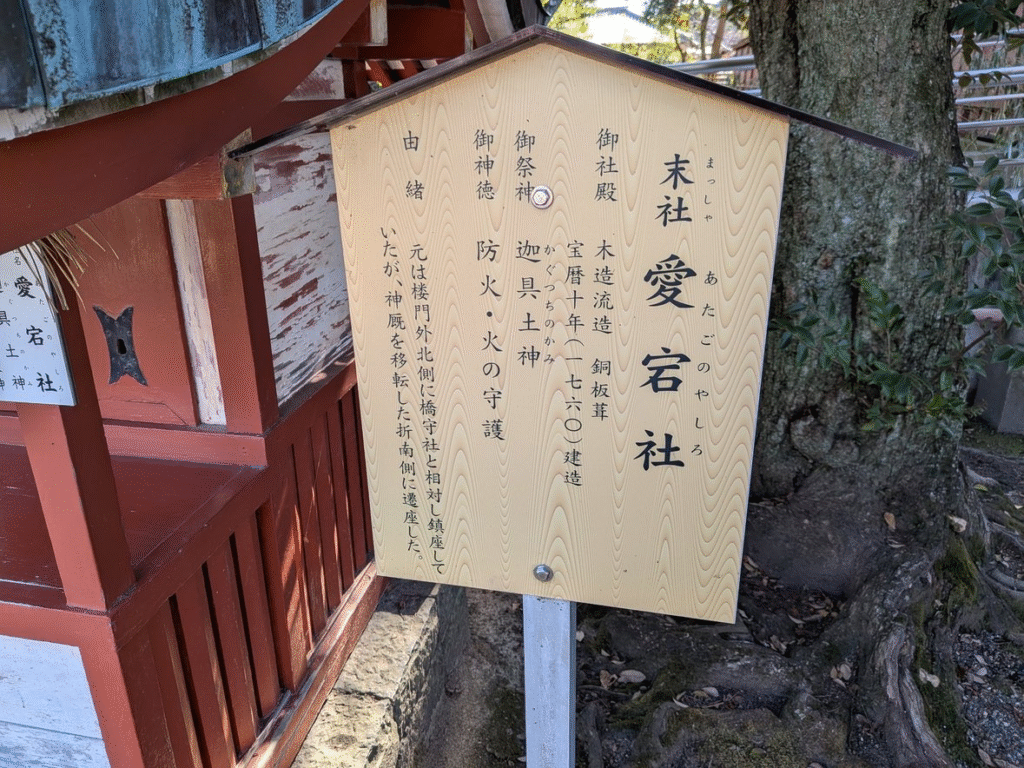 まっしゃ あたごのやしろ
末社 愛宕社
御社殿 木造流造 銅板葺
宝暦十年(一七六〇)建造
かぐつちのかみ
御祭神 迦具土神
御神徳 防火・火の守護
由緒 元は楼門外北側に橋守社と相対し鎮座して
いたが、神厩を移転した折南側に遷座した。
愛宕社